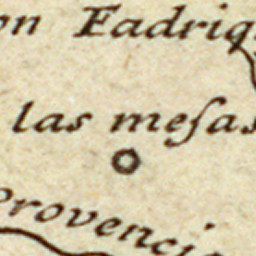 on Eadriq
las meſas
Provenci